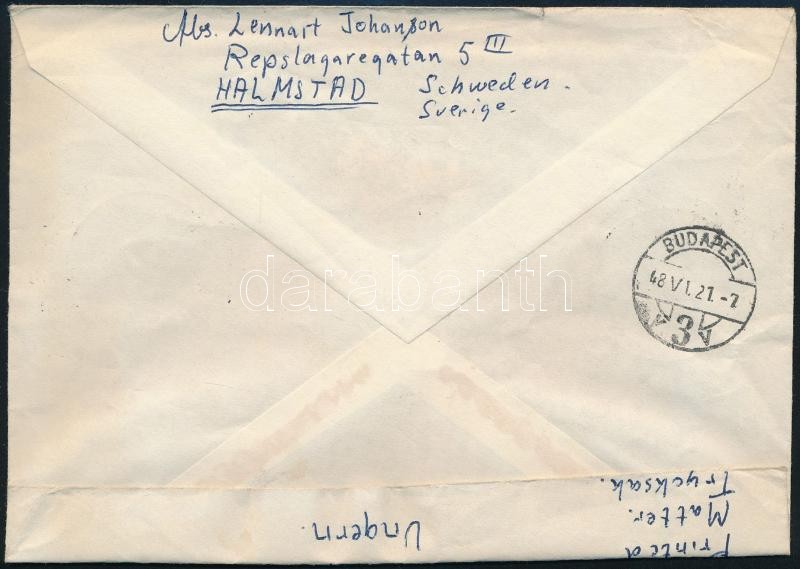 Abs. Lennart Johanson
Repslagaregatan 5 III
HALMSTAD Schweden.
Sverige.
darabanth
BUDAPEST
48 VI. 21. -7
3
Ungern.
Printed
Matter.
Trycksak.